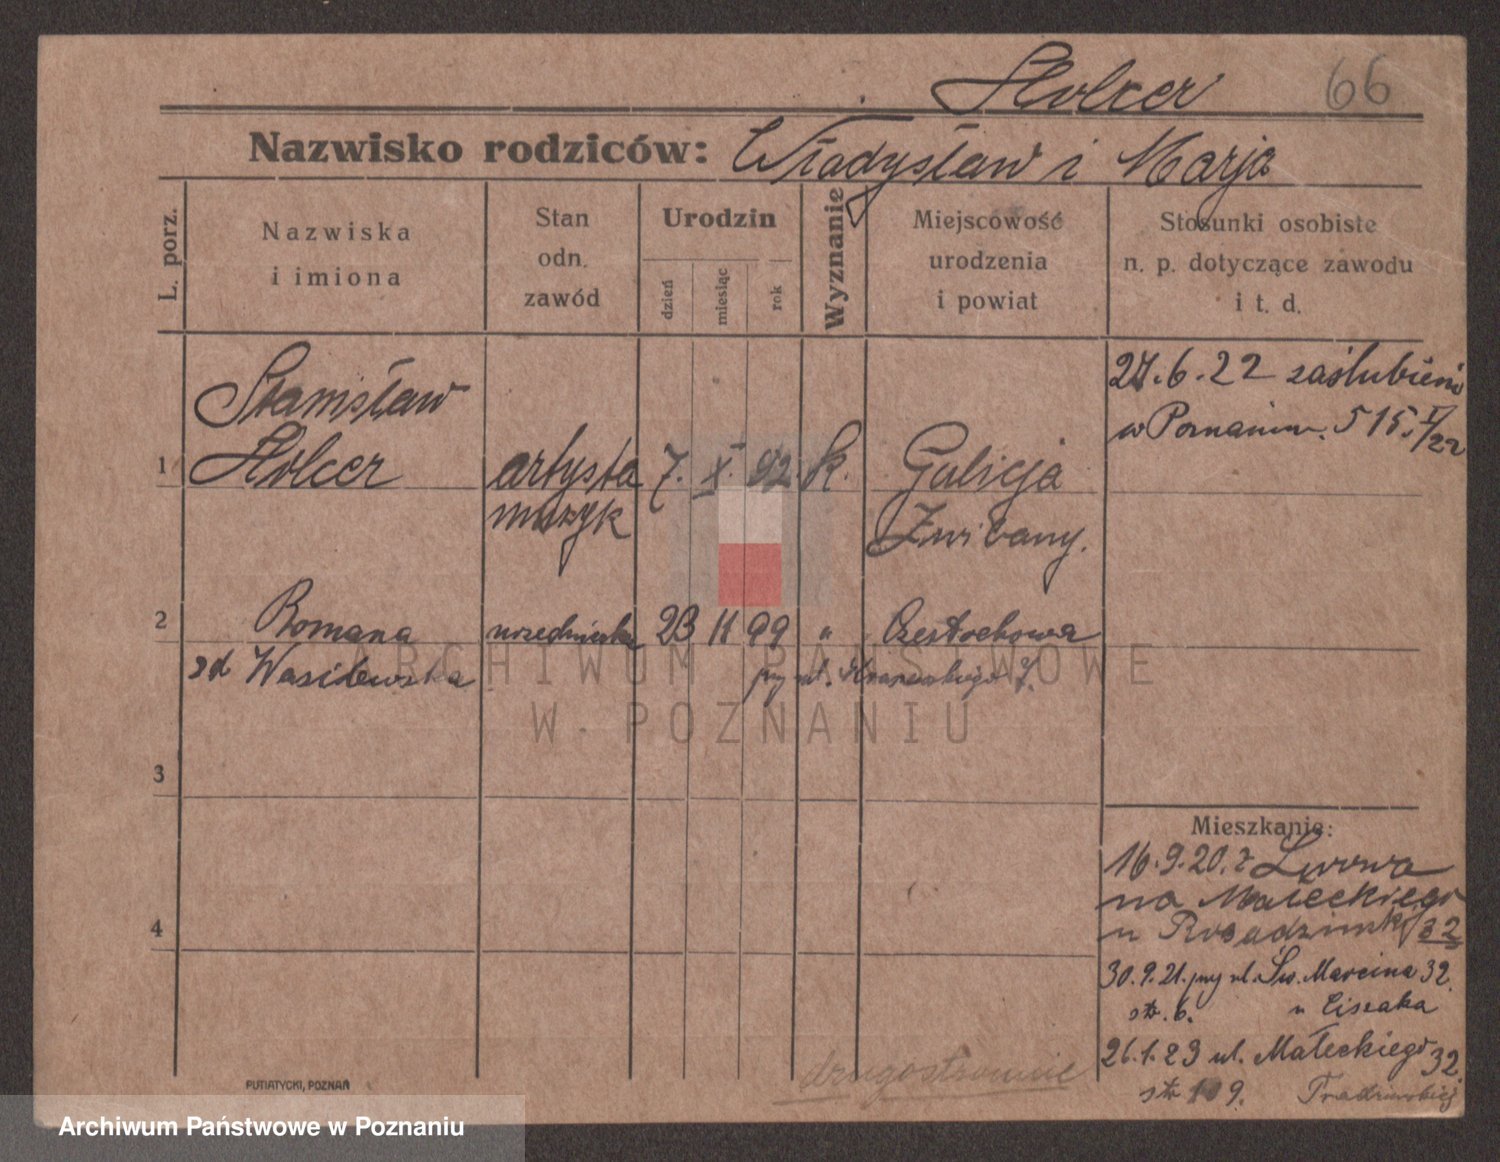 Holcer 66
Nazwisko rodziców: Władysław i Marja
L. porz.
Nazwiska
i imiona
Stan
odn.
zawód
Urodzin
dzień
miesiąc
rok
Wyznanie
Miejscowość
urodzenia
i powiat
Stosunki osobiste
n. p. dotyczące zawodu
i t. d.
27.6.22 zaślubieni
w Poznaniu. 515. I/22
Stanisław
1 Holcer artysta 7. X. 92 k. Galicja
muzyk
2 Romana urzędniczka 23 11 99 " Częstochowa
zd Wasilewska przy ul.
ARCHIWUM PAŃSTWOWE
W POZNANIU
3
4
Mieszkanie:
16.9.20. z Lwowa
na Małeckiego
u 32
30.9.21. przy ul. Św. Marcina 32.
str. 6. u Ciszaka
26.1.23 ul. Małeckiego 32.
str 109.
drugostronnie
PUTIATYCKI, POZNAŃ
Archiwum Państwowe w Poznaniu